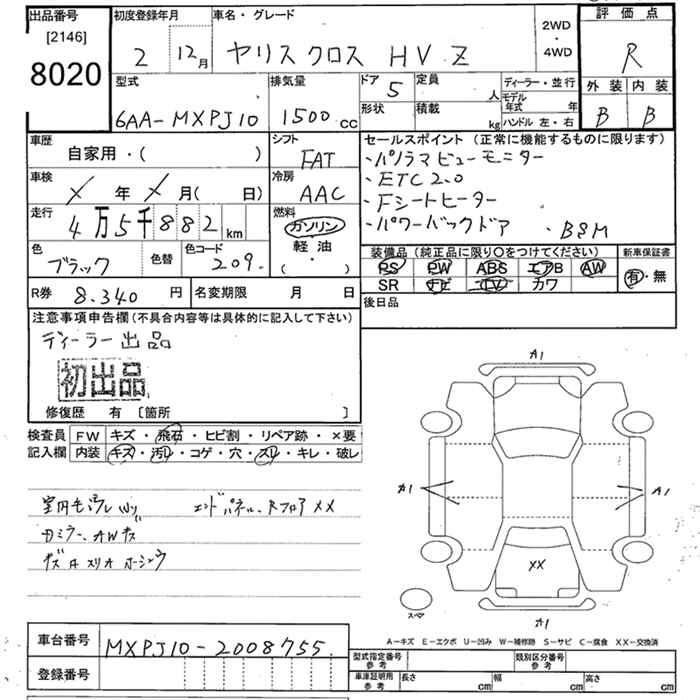 出品番号
[2146]
8020
初度登録年月
2 12月
車名・グレード
ヤリスクロス HV Z
2WD
・
4WD
評価点
R
外装 内装
B B
型式
6AA-MXPJ10
排気量
1500cc
ドア 5
形状
定員 人
積載 kg
ディーラー・並行
モデル年式 年
ハンドル 左・右
車歴
自家用・( )
シフト
FAT
車検
X 年 X 月( 日)
冷房
AAC
走行
4万5千882km
燃料
ガソリン
軽油
( ・ )
色
ブラック
色替
色コード
209.
セールスポイント (正常に機能するものに限ります)
・パノラマビューモニター
・ETC2.0
・Fシートヒーター
・パワーバックドア ・BSM
装備品 (純正品に限り○をつけてください)
PS PW ABS エアB AW
SR ナビ TV カワ
新車保証書
有・無
R券 8.340円
名変期限 月 日
後日品
注意事項申告欄(不具合内容等は具体的に記入して下さい)
ディーラー出品
初出品
修復歴 有 [箇所 ]
検査員
記入欄
FW キズ・飛石・ヒビ割・リペア跡・×要
内装 キズ・汚レ・コゲ・穴・スレ・キレ・破レ
エンドパネル、RフロアXX
ドミラー、AWキズ
A1
A1
A1
XX
スペア
A1
A-キズ E-エクボ U-凹み W-補修跡 S-サビ C-腐食 XX-交換済
車台番号
MXPJ10-2008755
登録番号
型式指定番号
参考
類別区分番号
参考
車庫証明用
参考
長さ cm
幅 cm
高さ cm